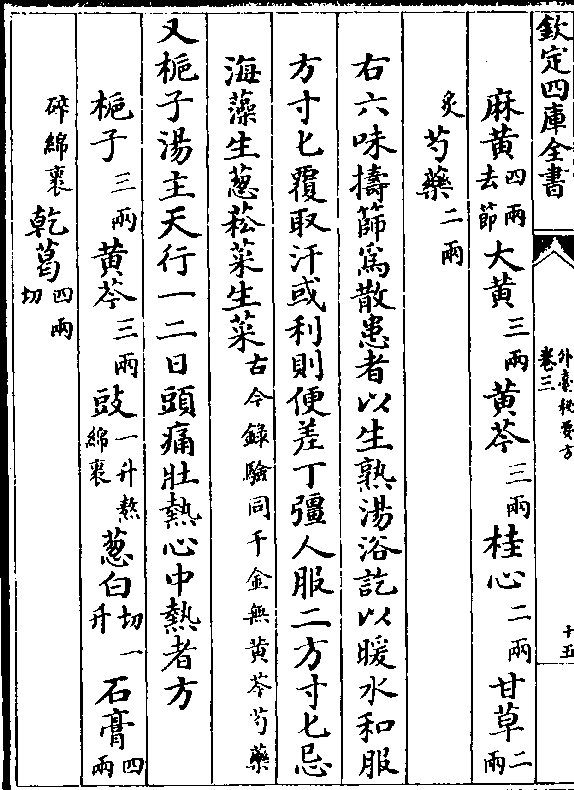 欽定四庫全書
外臺秘要方
卷三
十五
麻黄四兩去節 大黄三兩 黄芩三兩 桂心二兩 甘草二兩
炙 芍藥二兩
右六味擣篩為散患者以生熟湯浴訖以暖水和服
方寸匕覆取汗或利則便差丁彊人服二方寸匕忌
海藻生葱菘菜生菜古今錄驗同千金無黄芩芍藥
又梔子湯主天行一二日頭痛壯熱心中熱者方
梔子三兩 黄芩三兩 豉一升熬綿裹 葱白切一升 石膏四兩
碎綿裹 乾葛四兩切